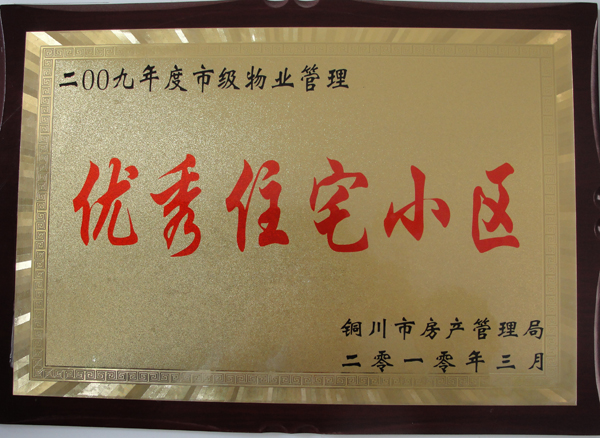 二00九年度市级物业管理
优秀住宅小区
铜川市房产管理局
二零一零年三月